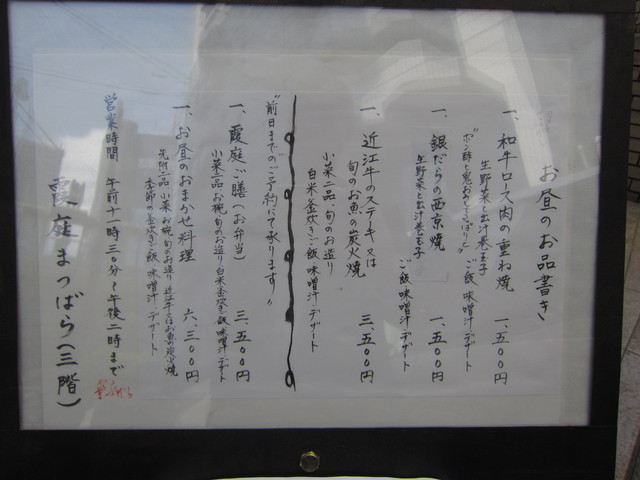 お昼のお品書き
一、和牛ロース肉の重ね焼　一、五〇〇円
生野菜、出汁巻玉子
"ポン酢と鬼おろしでさっぱりと"　ご飯、味噌汁、デザート
一、銀だらの西京焼　一、五〇〇円
生野菜、出汁巻玉子　ご飯、味噌汁、デザート
一、近江牛のステーキ又は
旬のお魚の炭火焼　三、五〇〇円
小菜二品、旬のお造り
白米釜炊きご飯、味噌汁、デザート
"前日までのご予約にて承ります"
一、霞庭ご膳（お弁当）　三、五〇〇円
小菜二品、お椀、旬のお造り、白米釜炊きご飯、味噌汁、デザート
一、お昼のおまかせ料理　六、三〇〇円
先附二品、小菜、お椀、旬のお造り、近江牛又はお魚の炭火焼
季節の釜炊きご飯、味噌汁、デザート
営業時間　午前十一時三〇分〜午後二時まで
霞庭まつばら（三階）